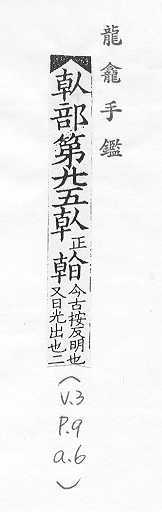 龍龕手鑑
倝部第廿五倝正倝今古按反明也又日光出也二
(V.3
P.9
a.6)